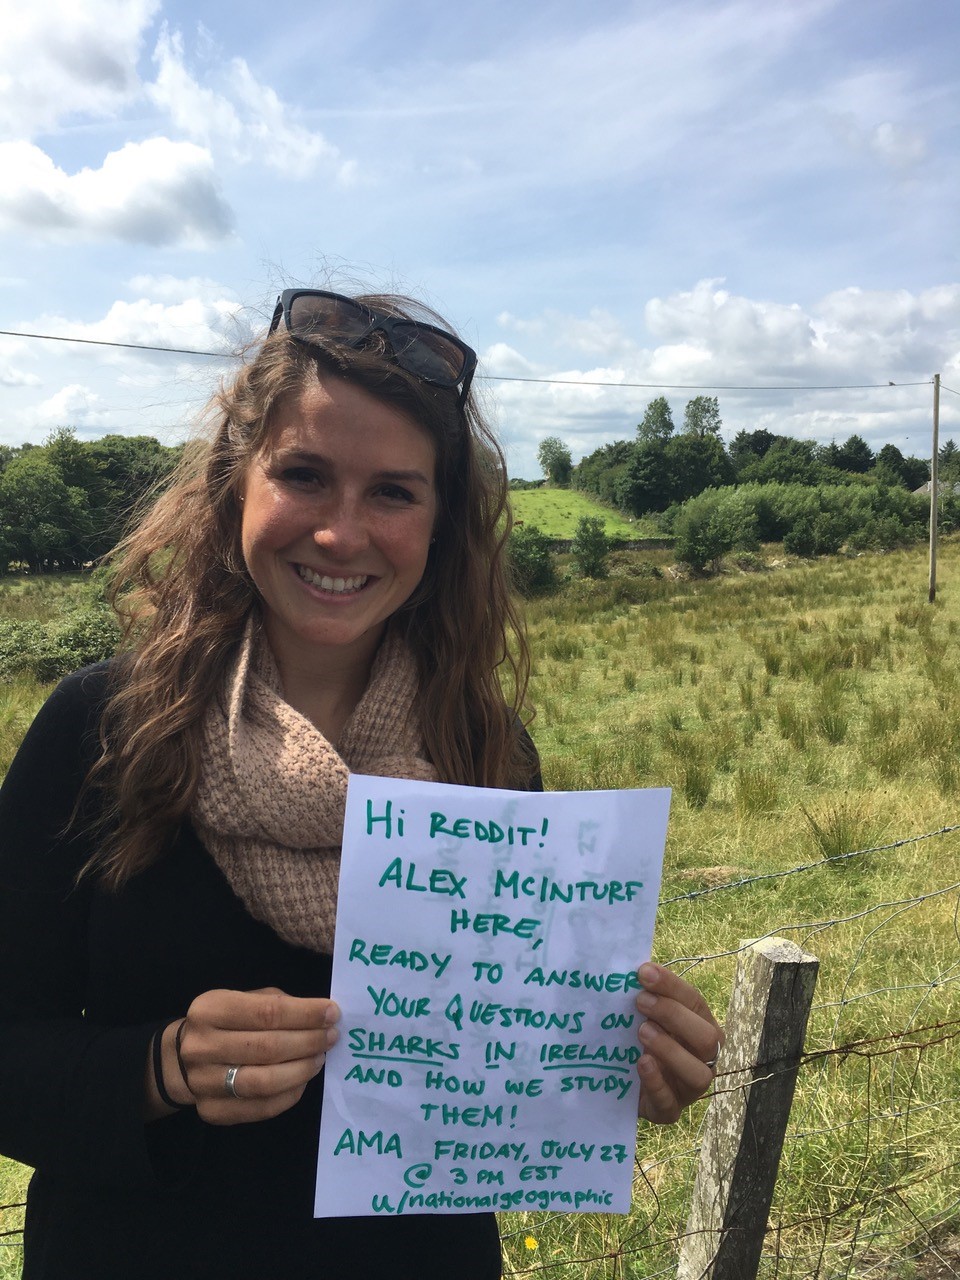 Hi REDDIT!
ALEX MCINTURF
HERE,
READY TO ANSWER
YOUR QUESTIONS ON
SHARKS IN IRELAND
AND HOW WE STUDY
THEM!
AMA FRIDAY, JULY 27
@ 3 PM EST
u/nationalgeographic